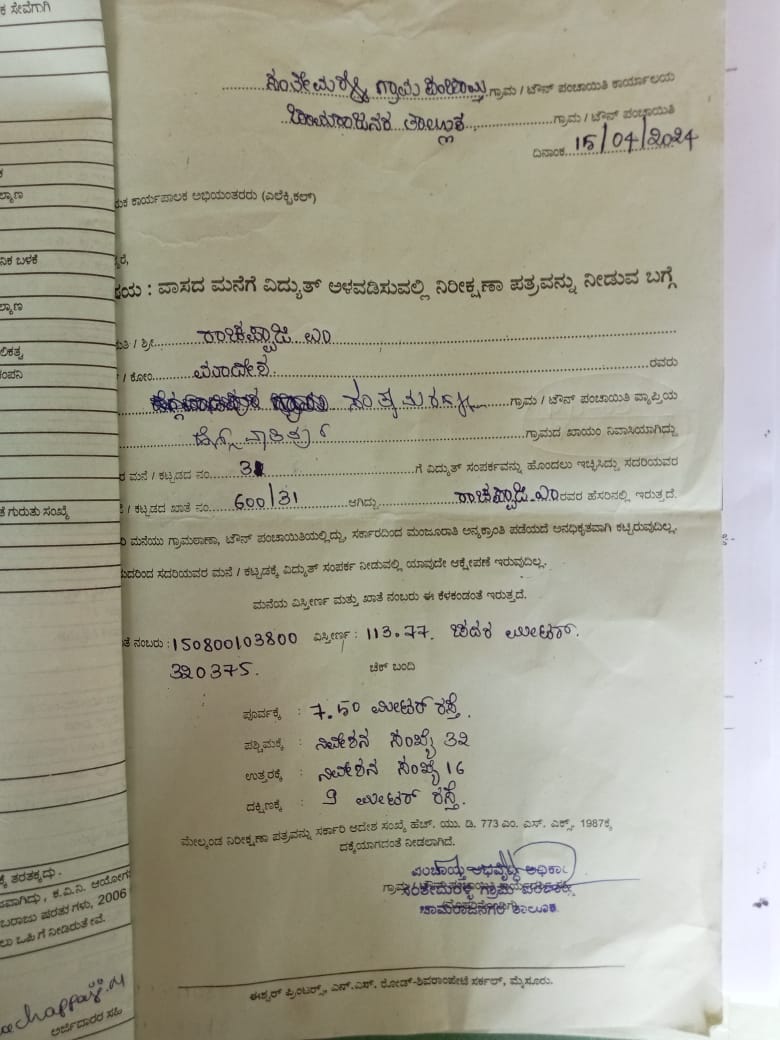 ಕ ಸೇವೆಗಾಗಿ
ಸಂತೇಮರಳ್ಳಿ ಗ್ರಾಮ ಪಂಚಾಯ್ತಿ ಗ್ರಾಮ / ಟೌನ್ ಪಂಚಾಯಿತಿ ಕಾರ್ಯಾಲಯ
ಚಾಮರಾಜನಗರ ತಾಲ್ಲೂಕು ಗ್ರಾಮ / ಟೌನ್ ಪಂಚಾಯಿತಿ
ದಿನಾಂಕ 15/04/2024
ಯಕ ಕಾರ್ಯಪಾಲಕ ಅಭಿಯಂತರರು (ಎಲೆಕ್ಟ್ರಿಕಲ್)
ನ್ಯರೆ,
ಷಯ : ವಾಸದ ಮನೆಗೆ ವಿದ್ಯುತ್ ಅಳವಡಿಸುವಲ್ಲಿ ನಿರೀಕ್ಷಣಾ ಪತ್ರವನ್ನು ನೀಡುವ ಬಗ್ಗೆ
ಮತಿ / ಶ್ರೀ ರಾಚಪ್ಪಾಜಿ ಎಂ
/ ಕೋಂ ಮಾದೇಶ ರವರು
ಸಂತೆಮರಳ್ಳಿ ಗ್ರಾಮ / ಟೌನ್ ಪಂಚಾಯಿತಿ ವ್ಯಾಪ್ತಿಯ
ಗ್ರಾಮದ ಖಾಯಂ ನಿವಾಸಿಯಾಗಿದ್ದು
ರ ಮನೆ / ಕಟ್ಟಡದ ನಂ. 31 ಗೆ ವಿದ್ಯುತ್ ಸಂಪರ್ಕವನ್ನು ಹೊಂದಲು ಇಚ್ಛಿಸಿದ್ದು ಸದರಿಯವರ
/ ಕಟ್ಟಡದ ಖಾತೆ ನಂ. 600/31 ಆಗಿದ್ದು ರಾಚಪ್ಪಾಜಿ.ಎಂ ರವರ ಹೆಸರಿನಲ್ಲಿ ಇರುತ್ತದೆ.
ರಿ ಮನೆಯು ಗ್ರಾಮಠಾಣಾ, ಟೌನ್ ಪಂಚಾಯಿತಿಯಲ್ಲಿದ್ದು, ಸರ್ಕಾರದಿಂದ ಮಂಜೂರಾತಿ ಅನ್ಯಕ್ರಾಂತಿ ಪಡೆಯದೆ ಅನಧಿಕೃತವಾಗಿ ಕಟ್ಟಿರುವುದಿಲ್ಲ.
ದರಿಂದ ಸದರಿಯವರ ಮನೆ / ಕಟ್ಟಡಕ್ಕೆ ವಿದ್ಯುತ್ ಸಂಪರ್ಕ ನೀಡುವಲ್ಲಿ ಯಾವುದೇ ಆಕ್ಷೇಪಣೆ ಇರುವುದಿಲ್ಲ.
ಮನೆಯ ವಿಸ್ತೀರ್ಣ ಮತ್ತು ಖಾತೆ ನಂಬರು ಈ ಕೆಳಕಂಡಂತೆ ಇರುತ್ತದೆ.
ತೆ ನಂಬರು : 150800103800 ವಿಸ್ತೀರ್ಣ : 113.77. ಚದರ ಮೀಟರ್.
320375.
ಚೆಕ್ ಬಂದಿ
ಪೂರ್ವಕ್ಕೆ : 7.50 ಮೀಟರ್ ರಸ್ತೆ.
ಪಶ್ಚಿಮಕ್ಕೆ : ನಿವೇಶನ ಸಂಖ್ಯೆ 32
ಉತ್ತರಕ್ಕೆ : ನಿವೇಶನ ಸಂಖ್ಯೆ 16
ದಕ್ಷಿಣಕ್ಕೆ : 9 ಮೀಟರ್ ರಸ್ತೆ.
ಮೇಲ್ಕಂಡ ನಿರೀಕ್ಷಣಾ ಪತ್ರವನ್ನು ಸರ್ಕಾರಿ ಆದೇಶ ಸಂಖ್ಯೆ ಹೆಚ್. ಯು. ಡಿ. 773 ಎಂ. ಎಸ್. ಎಕ್ಸ್. 1987ಕ್ಕೆ
ದಕ್ಕೆಯಾಗದಂತೆ ನೀಡಲಾಗಿದೆ.
ಪಂಚಾಯ್ತಿ ಅಭಿವೃದ್ಧಿ ಅಧಿಕಾರಿ
ಸಂತೇಮರಳ್ಳಿ ಗ್ರಾಮ ಪಂಚಾಯಿತಿ
ಚಾಮರಾಜನಗರ ತಾಲೂಕು
ಈಶ್ವರ್ ಪ್ರಿಂಟರ್ಸ್, ಎನ್.ಎಸ್. ರೋಡ್-ಶಿವರಾಂಪೇಟೆ ಸರ್ಕಲ್, ಮೈಸೂರು.
ಲ್ಯಾಣ
ನಿಕ ಬಳಕೆ
ಲ್ಯಾಣ
ಲಿಕತ್ವ
ಂಪನಿ
ತೆ ಗುರುತು ಸಂಖ್ಯೆ
ಕ್ಕೆ ತರತಕ್ಕದ್ದು.
ವಾಗಿದ್ದು, ಕ.ವಿ.ನಿ. ಆಯೋಗ
ಬರಾಜು ಷರತ್ತುಗಳು, 2006
ಲು ಒಪ್ಪಿಗೆ ನೀಡಿರುತ್ತೇವೆ.
achappaji.M
ಅರ್ಜಿದಾರರ ಸಹಿ